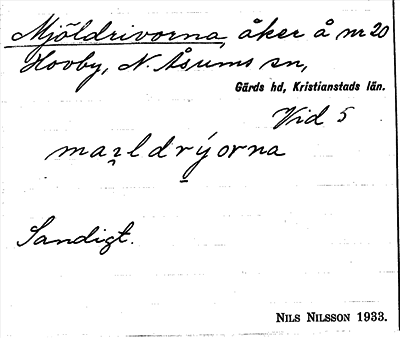 Mjöldrivorna, åker å nr 20
Hovby, N. Åsums sn,
Gärds hd, Kristianstads län.
Vid 5
maɿ̯ldrýorna
Sandigt.
NILS NILSSON 1933.